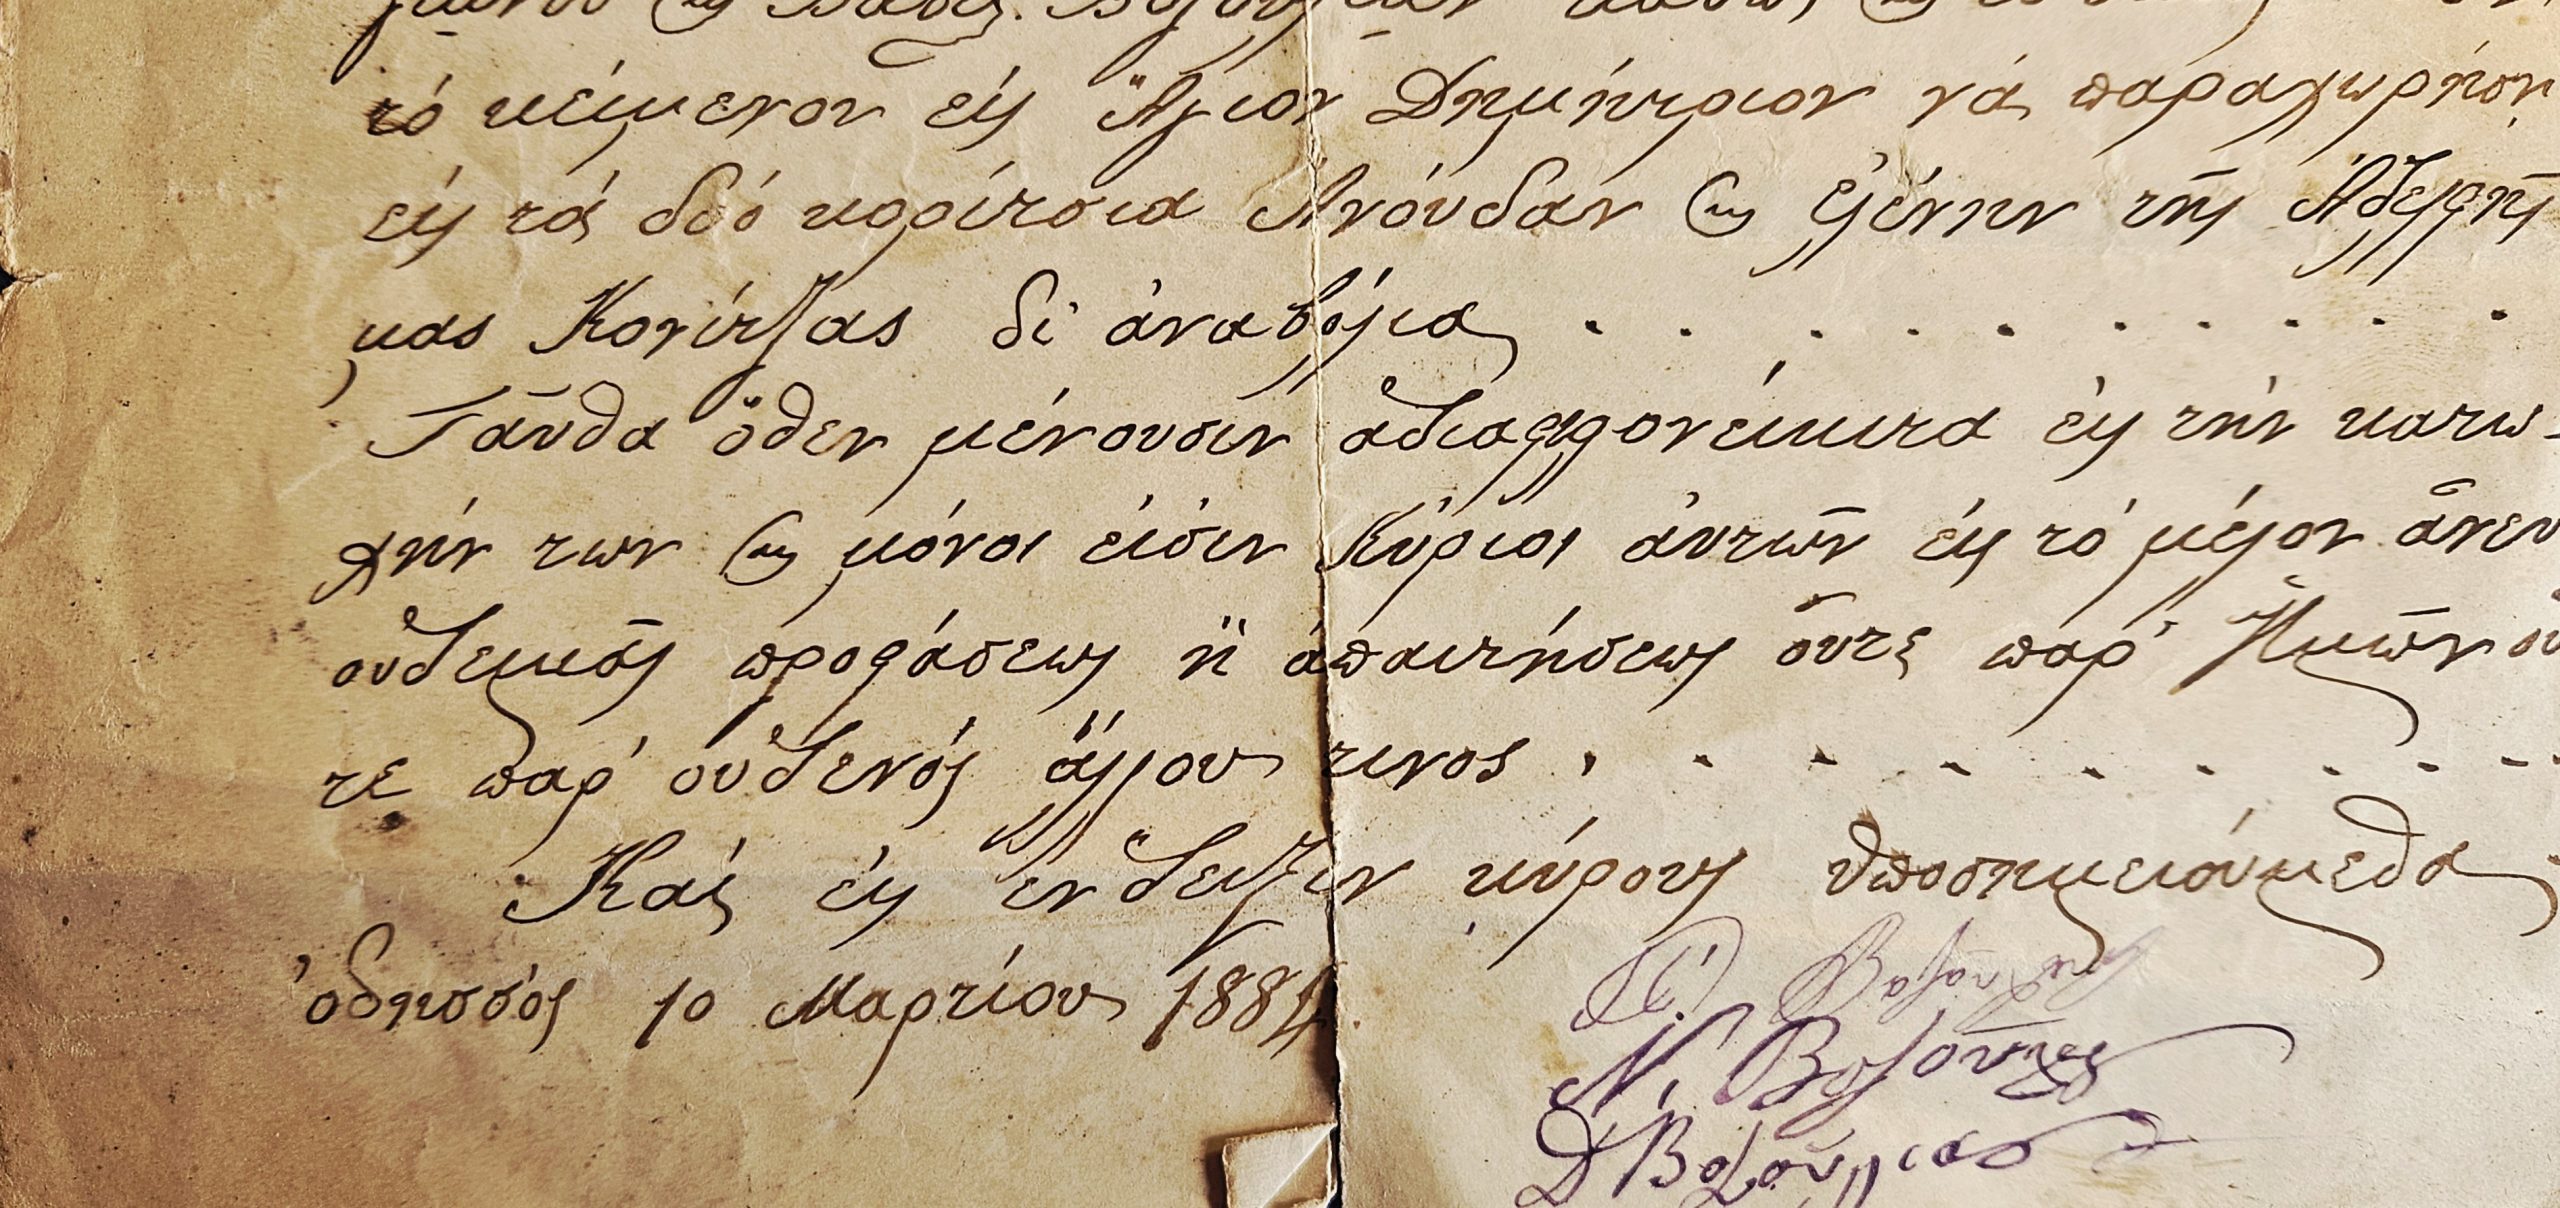 τό κείμενον είς Ἅγιον Δημήτριον νά παραχωρήσῃ
είς τά δύο κορίτσια Ἀνούδαν ϗ Ἑλένην τῆς Ἀδελφῆς
μας Κονίτζας δι' ἀναβόλια . . . . . . . . . .
Ταῦθα ὅθεν μένουσιν ἀδιαφιλονείκιτα είς τήν κατο-
χήν των ϗ μόνοι είσιν Κύριοι ἀυτῶν είς τό μέλλον ἄνευ
οὐδεμιᾶς προφάσεως ἤ ἀπαιτήσεως οὔτε παρ' Ἡμῶν οὔ
τε παρ' οὐδενός ἄλλου τινος . . . . . . . . . .
Καί είς ἔνδειξιν κύρους ὑποσημειούμεθα
Ὀδησσός 10 Μαρτίου 1884
Ν. Βολούλιας
Δ Βολούλιας